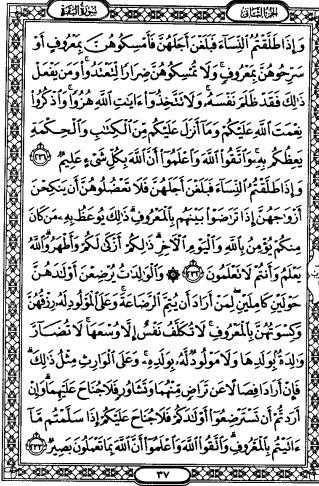 الجزء الثاني
سورة البقرة
وَإِذَا طَلَّقْتُمُ ٱلنِّسَآءَ فَبَلَغْنَ أَجَلَهُنَّ فَأَمْسِكُوهُنَّ بِمَعْرُوفٍ أَوْ
سَرِّحُوهُنَّ بِمَعْرُوفٍ ۚ وَلَا تُمْسِكُوهُنَّ ضِرَارًا لِّتَعْتَدُوا۟ ۚ وَمَن يَفْعَلْ
ذَٰلِكَ فَقَدْ ظَلَمَ نَفْسَهُۥ ۚ وَلَا تَتَّخِذُوٓا۟ ءَايَٰتِ ٱللَّهِ هُزُوًا ۚ وَٱذْكُرُوا۟
نِعْمَتَ ٱللَّهِ عَلَيْكُمْ وَمَآ أَنزَلَ عَلَيْكُم مِّنَ ٱلْكِتَٰبِ وَٱلْحِكْمَةِ
يَعِظُكُم بِهِۦ ۚ وَٱتَّقُوا۟ ٱللَّهَ وَٱعْلَمُوٓا۟ أَنَّ ٱللَّهَ بِكُلِّ شَىْءٍ عَلِيمٌ ٢٣١
وَإِذَا طَلَّقْتُمُ ٱلنِّسَآءَ فَبَلَغْنَ أَجَلَهُنَّ فَلَا تَعْضُلُوهُنَّ أَن يَنكِحْنَ
أَزْوَٰجَهُنَّ إِذَا تَرَٰضَوْا۟ بَيْنَهُم بِٱلْمَعْرُوفِ ۗ ذَٰلِكَ يُوعَظُ بِهِۦ مَن كَانَ
مِنكُمْ يُؤْمِنُ بِٱللَّهِ وَٱلْيَوْمِ ٱلْءَاخِرِ ۗ ذَٰلِكُمْ أَزْكَىٰ لَكُمْ وَأَطْهَرُ ۗ وَٱللَّهُ
يَعْلَمُ وَأَنتُمْ لَا تَعْلَمُونَ ٢٣٢ ۞ وَٱلْوَٰلِدَٰتُ يُرْضِعْنَ أَوْلَٰدَهُنَّ
حَوْلَيْنِ كَامِلَيْنِ ۖ لِمَنْ أَرَادَ أَن يُتِمَّ ٱلرَّضَاعَةَ ۚ وَعَلَى ٱلْمَوْلُودِ لَهُۥ رِزْقُهُنَّ
وَكِسْوَتُهُنَّ بِٱلْمَعْرُوفِ ۚ لَا تُكَلَّفُ نَفْسٌ إِلَّا وُسْعَهَا ۚ لَا تُضَآرَّ
وَٰلِدَةٌۢ بِوَلَدِهَا وَلَا مَوْلُودٌ لَّهُۥ بِوَلَدِهِۦ ۚ وَعَلَى ٱلْوَارِثِ مِثْلُ ذَٰلِكَ ۗ
فَإِنْ أَرَادَا فِصَالًا عَن تَرَاضٍ مِّنْهُمَا وَتَشَاوُرٍ فَلَا جُنَاحَ عَلَيْهِمَا ۗ وَإِنْ
أَرَدتُّمْ أَن تَسْتَرْضِعُوٓا۟ أَوْلَٰدَكُمْ فَلَا جُنَاحَ عَلَيْكُمْ إِذَا سَلَّمْتُم مَّآ
ءَاتَيْتُم بِٱلْمَعْرُوفِ ۗ وَٱتَّقُوا۟ ٱللَّهَ وَٱعْلَمُوٓا۟ أَنَّ ٱللَّهَ بِمَا تَعْمَلُونَ بَصِيرٌ ٢٣٣
٣٧